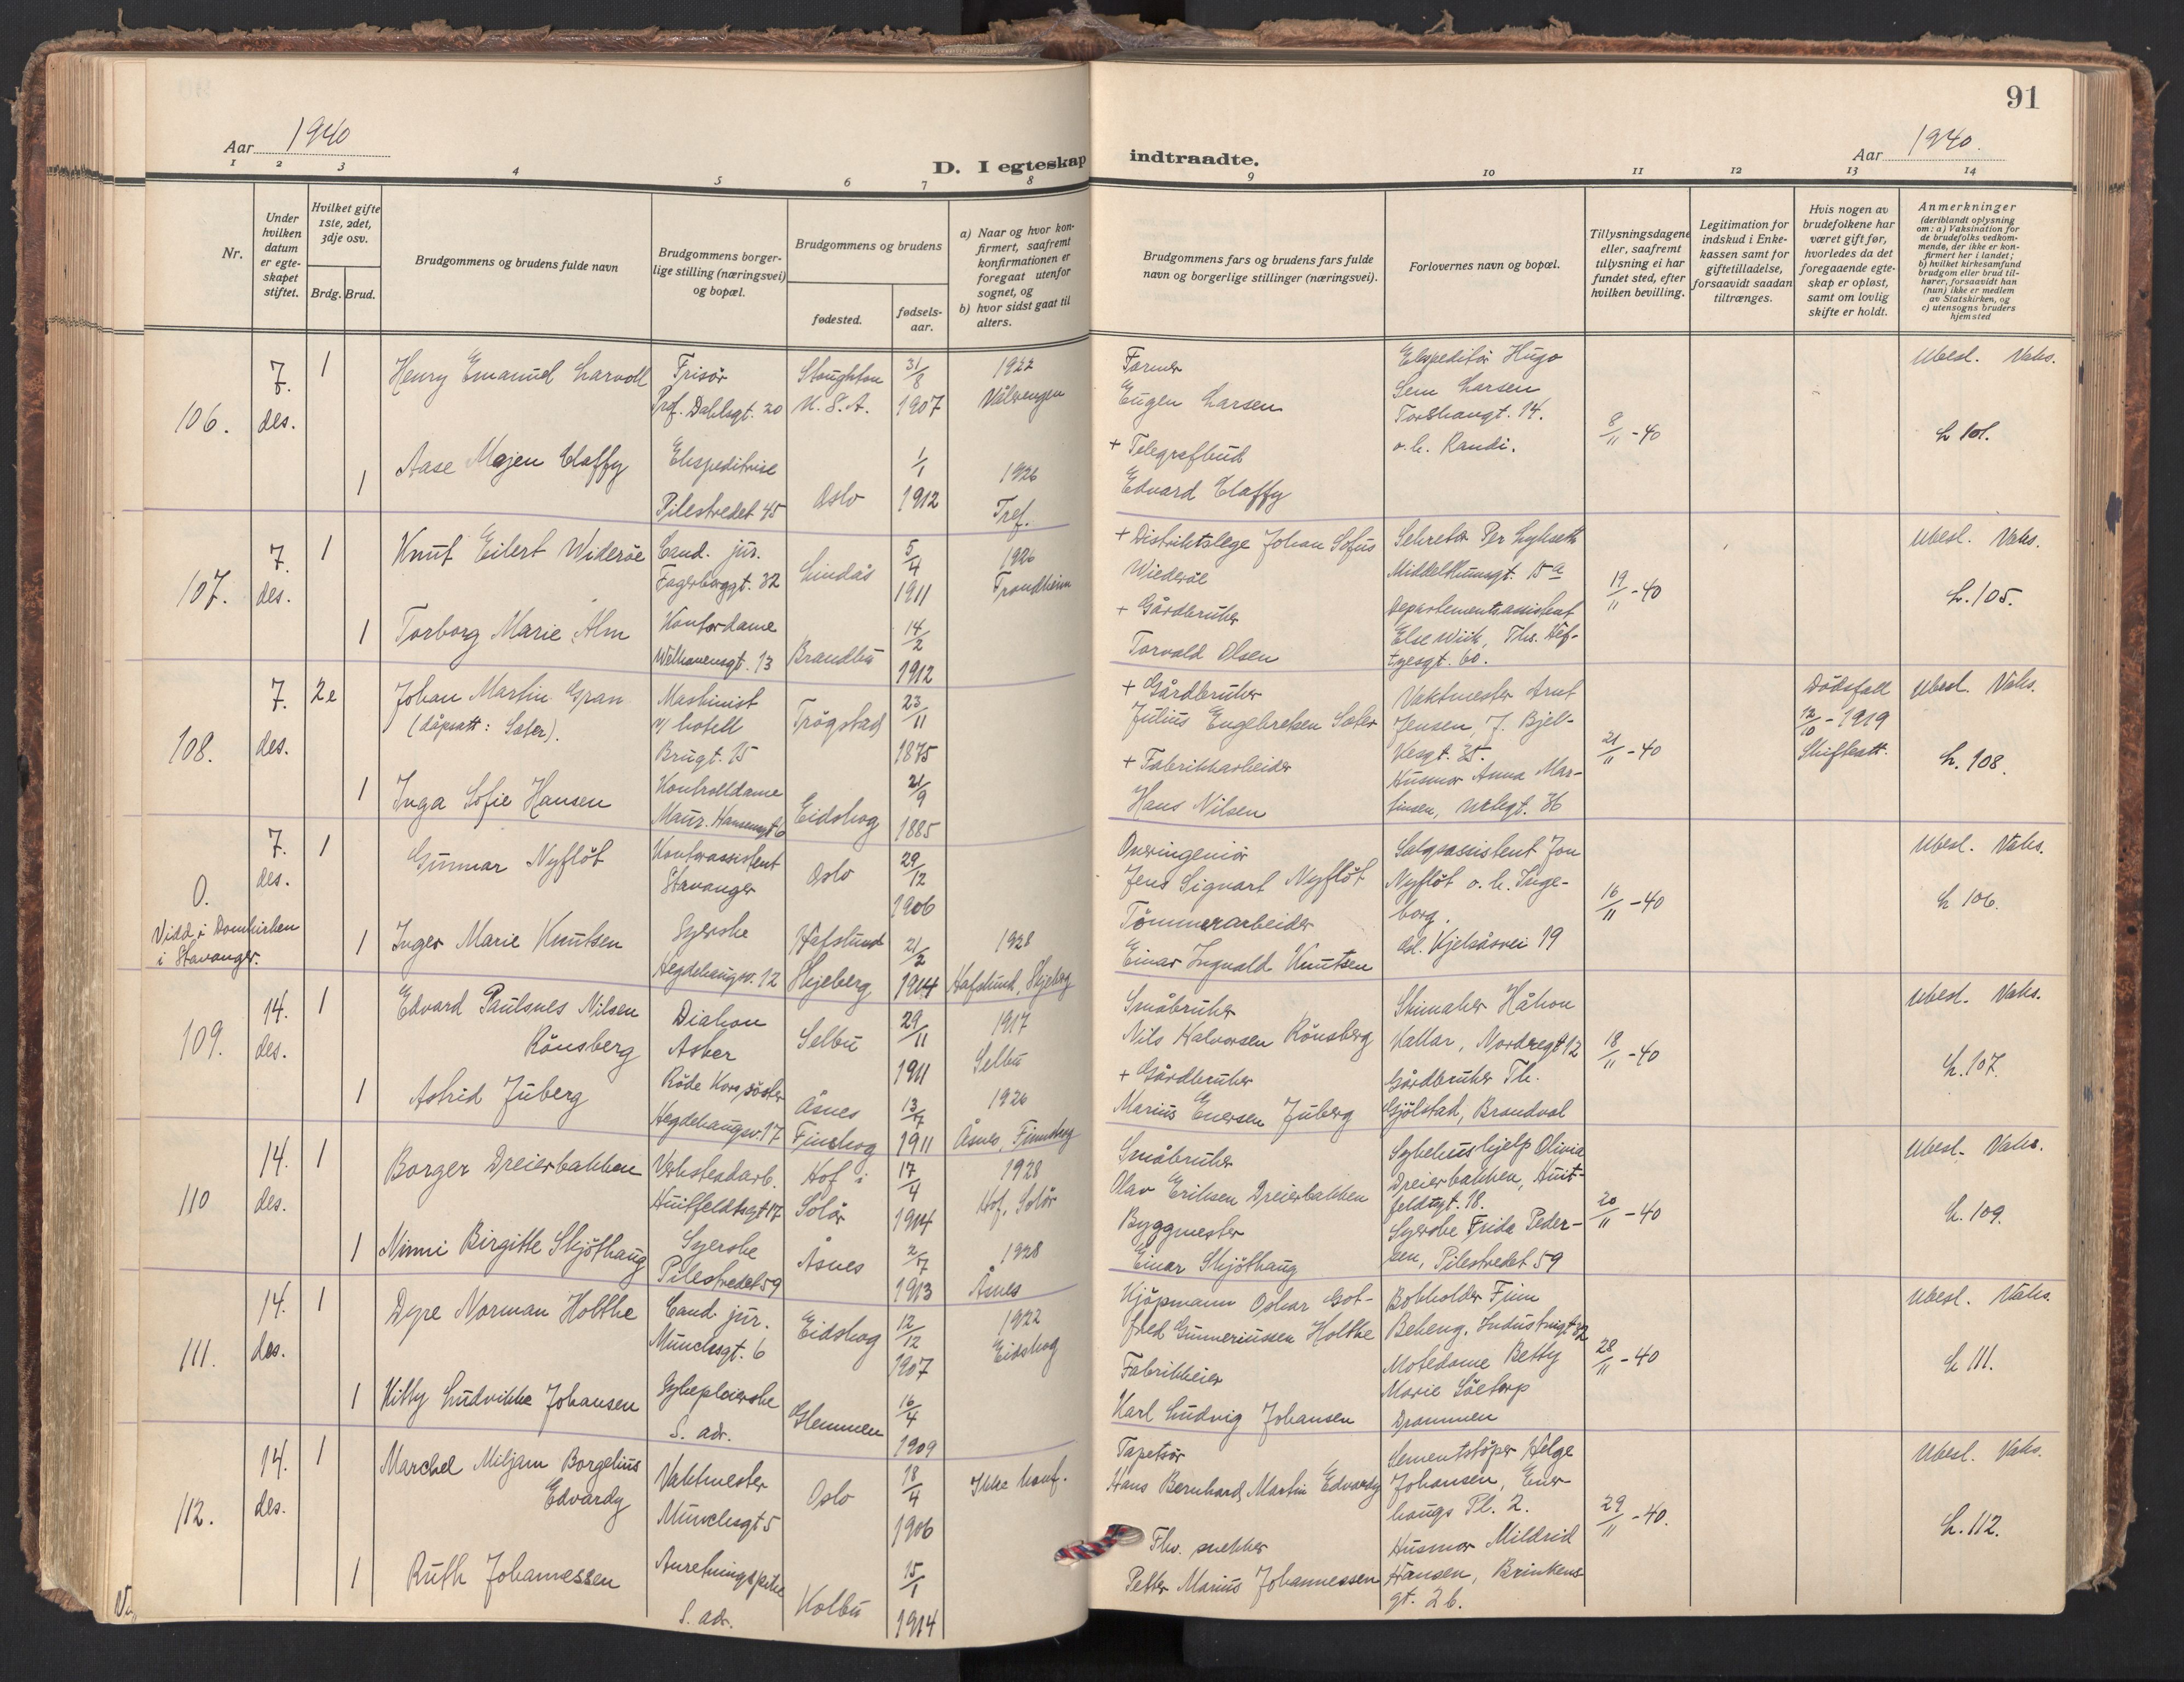 91
Aar 1940
D. I egteskap indtraadte.
Aar 1940.
1 2 3 4 5 6 7 8 9 10 11 12 13 14
Nr.
Under hvilken datum er egteskapet stiftet.
Hvilket gifte 1ste, 2det, 3dje osv.
Brdg. Brud.
Brudgommens og brudens fulde navn
Brudgommens borgerlige stilling (næringsvei) og bopæl.
Brudgommens og brudens
fødested.
fødselsaar.
a) Naar og hvor konfirmert, saafremt konfirmationen er foregaat utenfor sognet, og
b) hvor sidst gaat til alters.
Brudgommens fars og brudens fars fulde navn og borgerlige stillinger (næringsvei).
Forlovernes navn og bopæl.
Tillysningsdagene eller, saafremt tillysning ei har fundet sted, efter hvilken bevilling.
Legitimation for indskud i Enkekassen samt for giftetilladelse, forsaavidt saadan tiltrænges.
Hvis nogen av brudefolkene har været gift før, hvorledes da det foregaaende egteskap er opløst, samt om lovlig skifte er holdt.
Anmerkninger
(deriblandt oplysning om: a) Vaksination for de brudefolks vedkommende, der ikke er konfirmert her i landet;
b) hvilket kirkesamfund brudgom eller brud tilhører, forsaavidt han (hun) ikke er medlem av Statskirken, og
c) utensogns bruders hjemsted
106. 7. des. 1
Henry Emanuel Larvoll
Frisör
Prof. Dahlsgt. 20
Stoughton
U.S.A.
31/8 1907
1922
Vålerengen
Farmer
Eugen Larsen
Ekspeditör Hugo
Sem Larsen
Torshaugt. 14.
o.h. Randi.
8/11-40
Ubesl. Vaks.
L 101.
1
Aase Majen Claffy
Ekspeditrise
Pilestredet 45
Oslo
1/1 1912
1926
Tref.
+ Telegrafbud
Edvard Claffy
107. 7. des. 1
Knut Eilert Wideröe
Cand. jur.
Fagerborggt. 32
Lindås
5/4 1911
1926
Trondheim
+ Distriktslege Johan Sofus
Wideröe
Sekretær Per Lykseth
Middelthunsgt. 15a
19/11-40
Ubesl. Vaks.
L. 105.
1
Torborg Marie Alm
Kontordame
Welhavensgt. 13
Brandbu
14/2 1912
+ Gårdbruker
Torvald Olsen
Departementsassistent
Else Wiik, Ths. Heftyesgt. 60.
108. 7. des. 2e
Johan Martin Gran
(dåpsatt: Sæter).
Maskinist
v/ hotell
Brugt. 15
Trögstad
23/11 1875
+ Gårdbruker
Julius Engebretsen Sæter
Vaktmester Arnt
Jensen, J. Bjelkesgt. 35.
21/11-40
Dödsfall
12/10-1919
Skifteatt.
Ubesl. Vaks.
L. 108.
1
Inga Sofie Hansen
Kontrolldame
Maur. Hansensgt 6
Eidskog
21/9 1885
+ Fabrikkarbeider
Hans Nilsen
Husmor Anna Martinsen, Urtegt. 36
0.
Vidd i Domkirken
i Stavanger.
7. des. 1
Gunnar Nyflöt
Kontorassistent
Stavanger
Oslo
29/12 1906
Overingeniör
Jens Sigvart Nyflöt
Salgsassistent Jon
Nyflöt o.h. Ingeborg.
Adr. Kjelsåsvei 19
16/11-40
Ubesl. Vaks.
L 106.
1
Inger Marie Knutsen
Syerske
Hegdehaugsv. 12
Hafslund
Skjeberg
21/2 1914
1928
Hafslund, Skjeberg
Tömmerarbeider
Einar Ingvald Knutsen
109. 14. des. 1
Edvard Paulsnes Nilsen
Rönsberg
Diakon
Asker
Selbu
29/11 1911
1917
Selbu
Småbruker
Nils Halvorsen Rönsberg
Skimaker Håkon
Kallar, Nordregt 12
18/11-40
Ubesl. Vaks.
L. 107.
1
Astrid Juberg
Röde Kors söster
Hegdehaugsv. 17
Åsnes
Finskog
13/7 1911
1926
Åsnes, Finnskog
+ Gårdbruker
Marius Enersen Juberg
Gårdbruker Th.
Gjölstad, Brandval
110 14. des. 1
Borger Dreierbakken
Verkstedarb.
Huitfeldtsgt 17
Hof i
Solör
17/4 1914
1928
Hof, Solör
Småbruker
Olav Eriksen Dreierbakken
Sykehushjelp Olivia
Dreierbakken, Huitfeldtsgt. 18.
20/11-40
Ubesl. Vaks.
L. 109.
1
Ninni Birgitte Skjöthaug
Syerske
Pilestredet 59
Åsnes
2/7 1913
1928
Åsnes
Byggmester
Einar Skjöthaug
Syerske Frida Pedersen, Pilestredet 59
111. 14. des. 1
Dyre Norman Holthe
Cand. jur.
Munchsgt. 6
Eidskog
12/12 1907
1922
Eidskog
Kjöpmann Oskar Gotfred Gunneriussen Holthe
Bokholder Finn
Bekeng, Industrigt 32
28/11-40
Ubesl. Vaks.
L 111.
1
Kitty Ludvikke Johansen
Sykepleierske
S. adr.
Glemmen
16/4 1909
Fabrikkeier
Karl Ludvig Johansen
Motedame Betty
Marie Söetorp
Drammen
112. 14. des. 1
Marchel Miljam Borgelius
Edvardy
Vaktmester
Munchsgt 5
Oslo
18/4 1906
Ikke konf.
Tapetsör
Hans Bernhard Martin Edvardy
Sementstöper Helge
Johansen, Enerhaugs Pl. 2.
29/11-40.
Ubesl. Vaks.
L. 112.
1
Ruth Johannessen
Anretningspike
S. adr.
Kolbu
15/1 1914
Fhv. snekker
Petter Marius Johannessen
Husmor Mildrid
Hansen, Brinkens
gt. 26.